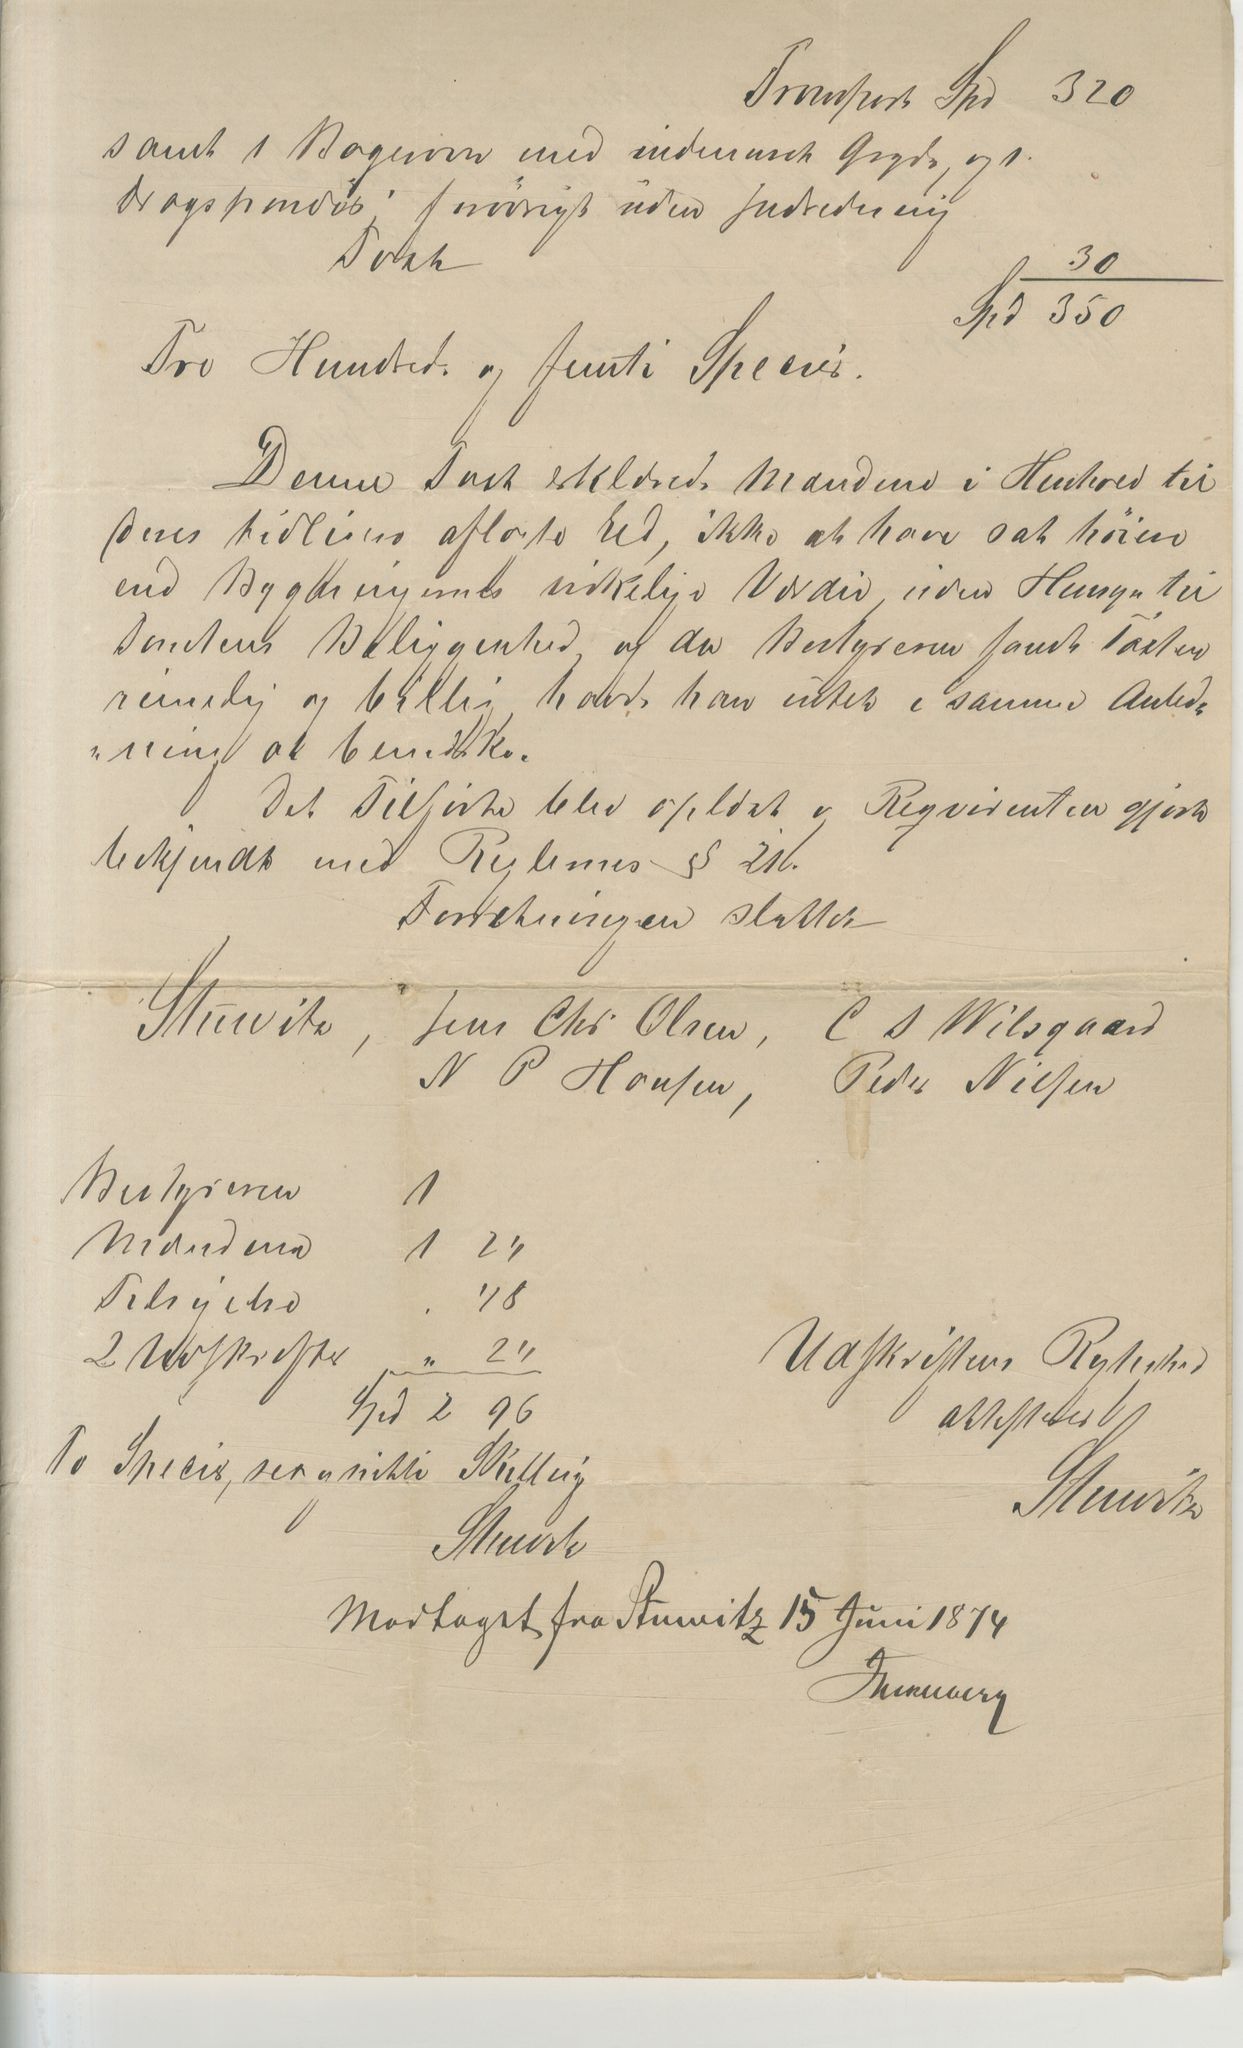 Transport Spd 320
samt 1 Bagerovn med indmuret Gryde, og 1
forövrigt uden Indredning
Taxt 30
Spd 350
Tre Hundrede og femti Species.
Denne Taxt erklærede Mændene i Henhold til
deres tidligere aflagte Ed, ikke at have sat höiere
end Bygningernes virkelige Værdie, uden Hensyn til
Tomtens Beliggenhed, og da Bestyreren fandt Taxten
rimelig og billig, havde han intet i samme Anled-
"ning at bemærke.
Det Tilförte blev oplæst og Reqvirenten gjort
bekjendt med Reglernes § 21.
Forretningen sluttet
Stuwitz, Jens Chr Olsen, C S Wilsgaard
N P Hansen, Peder Nilsen
Bestyreren 1
Mændene 1 24
Tilsigelse . 48
2 Udskrifter " 24
Spd 2 96
Udskriftens Rigtighed
attesterer
To Species, sex og nitti Skilling
Stuwitz
Stuwitz
Modtaget fra Stuwitz 15 Juni 1874